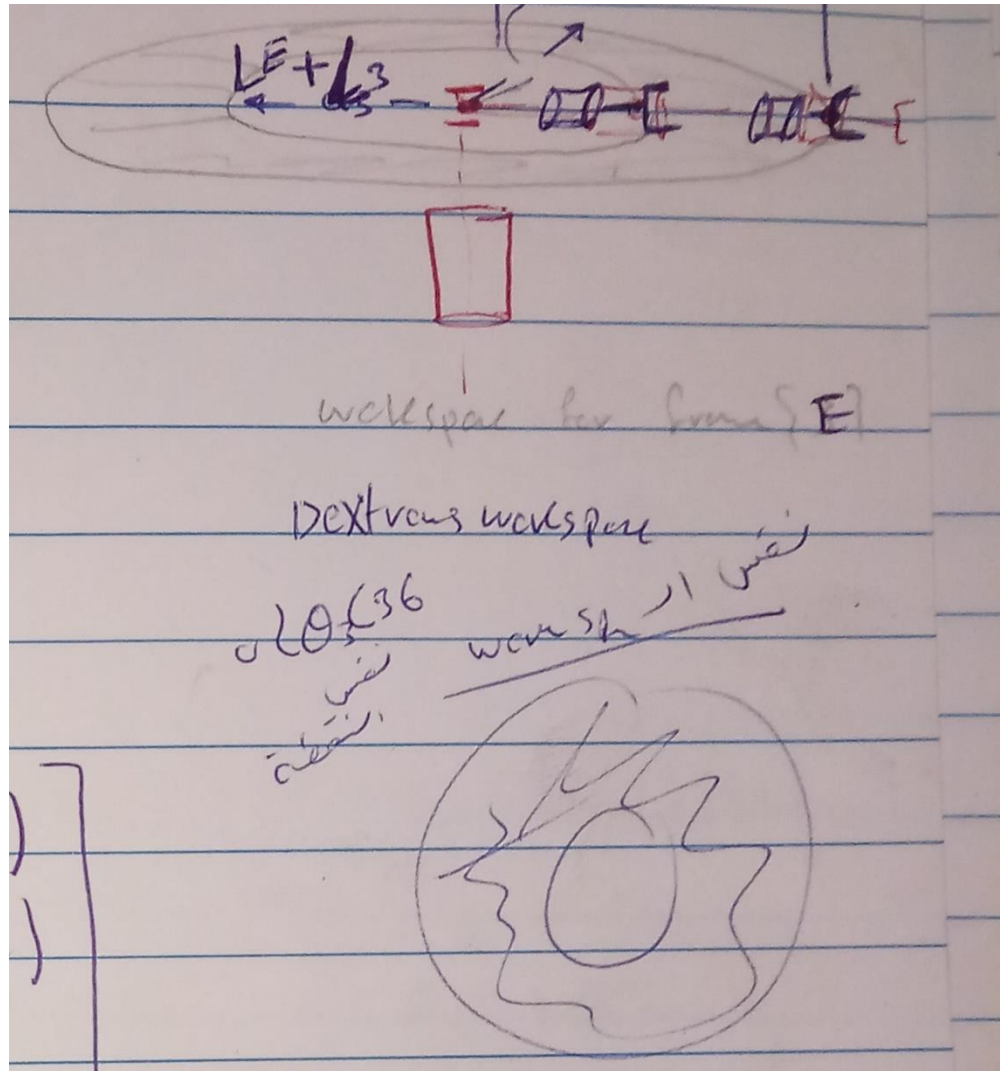 L E + L 3
workspace for frame {E}
Dextrous workspace
نفس ال worksp
0 < θ3 < 36
نفس
النقطة